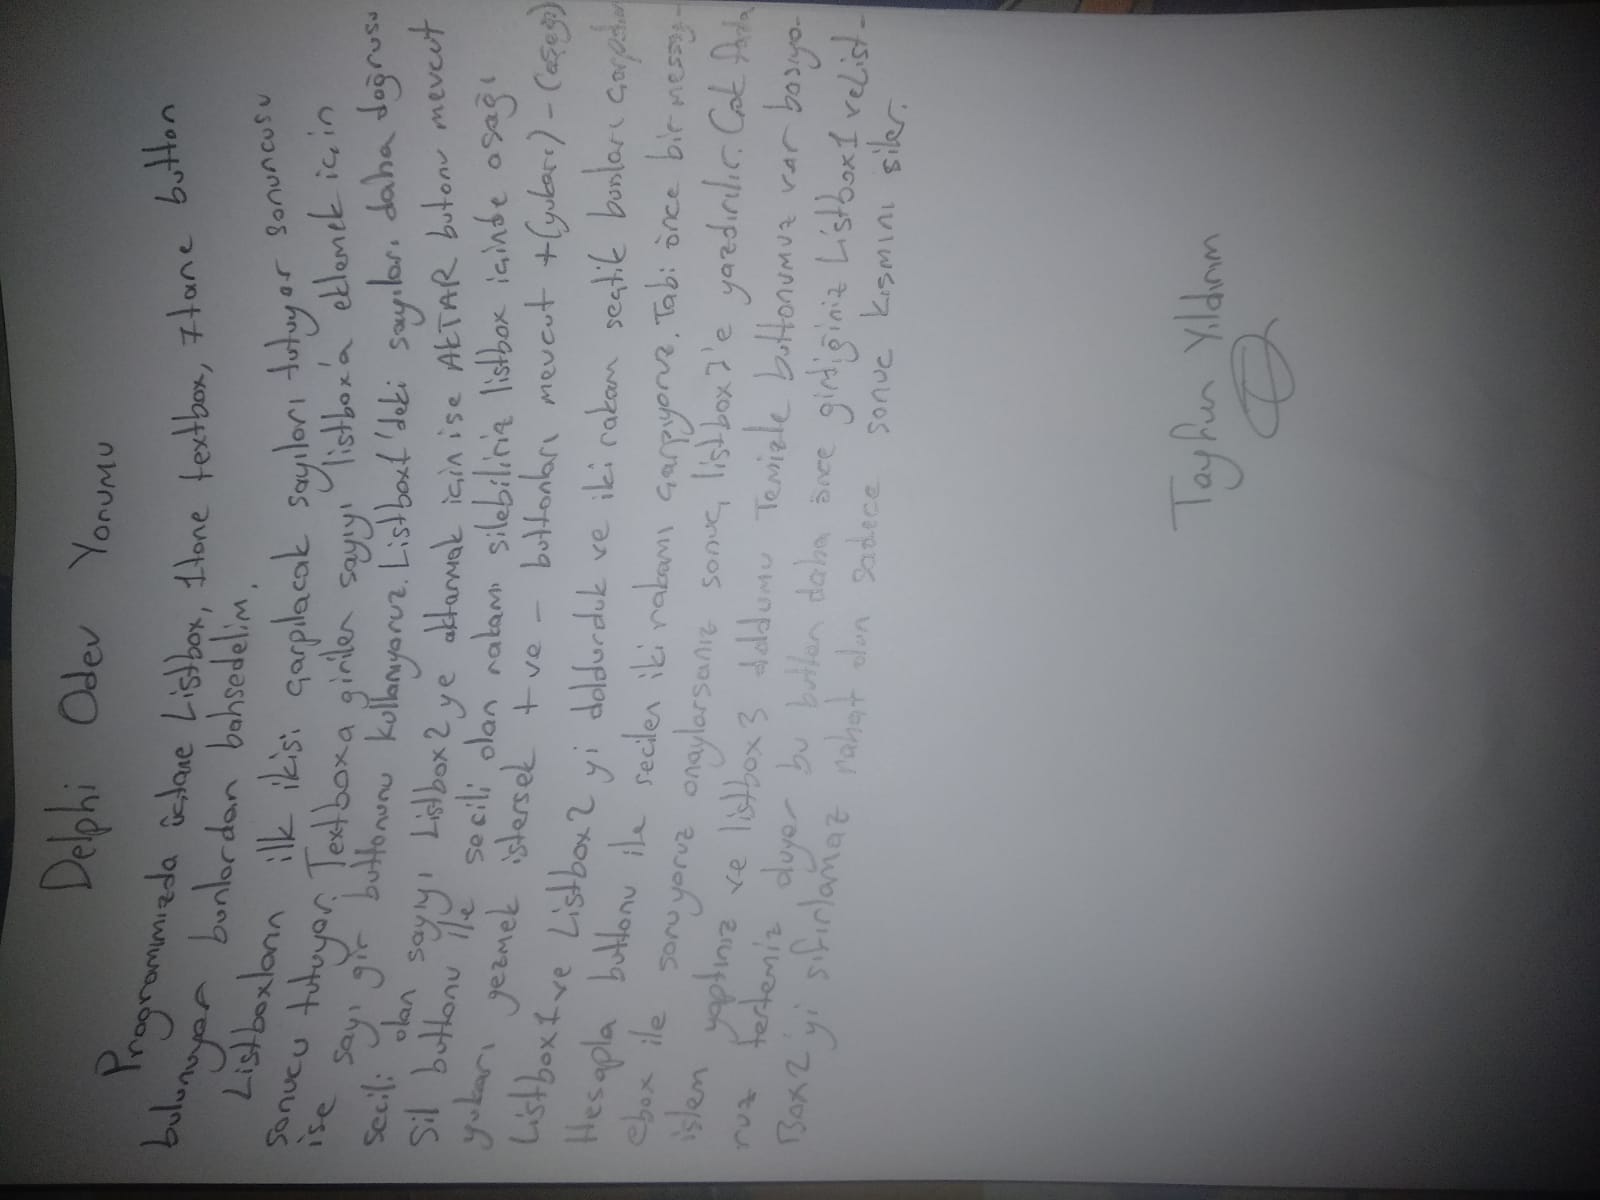 Delphi Odev Yorumu
Programımızda üçtane Listbox, 1tane textbox, 7tane button
bulunuyor bunlardan bahsedelim.
Listboxların ilk ikisi çarpılacak sayıları tutuyor sonuncusu
sonucu tutuyor. Textboxa girilen sayıyı listbox'a eklemek için
ise sayı gir buttonunu kullanıyoruz. Listbox1'deki sayıları daha doğrusu
secili olan sayıyı Listbox2ye aktarmak için ise AKTAR butonu mevcut
Sil buttonu ile secili olan rakamı silebiliriz listbox içinde aşağı
yukarı gezmek istersek + ve - buttonları mevcut +(yukarı) - (aşağı)
Listbox1 ve Listbox2 yi doldurduk ve iki rakam seçtik bunları
Hesapla buttonu ile secilen iki rakamı çarpıyoruz. Tabi önce bir messag-
ebox ile soruyoruz onaylarsanız sonuç listbox3'e yazdırılır. Çok fazla
işlem yaptınız ve listbox3 doldumu Temizle buttonumuz var basıyo-
ruz tertemiz duyor bu button daha önce girdiğiniz Listbox1 veList-
Box2'yi sıfırlamaz rahat olun sadece sonuc kısmını siler.
Tayfun Yıldırım